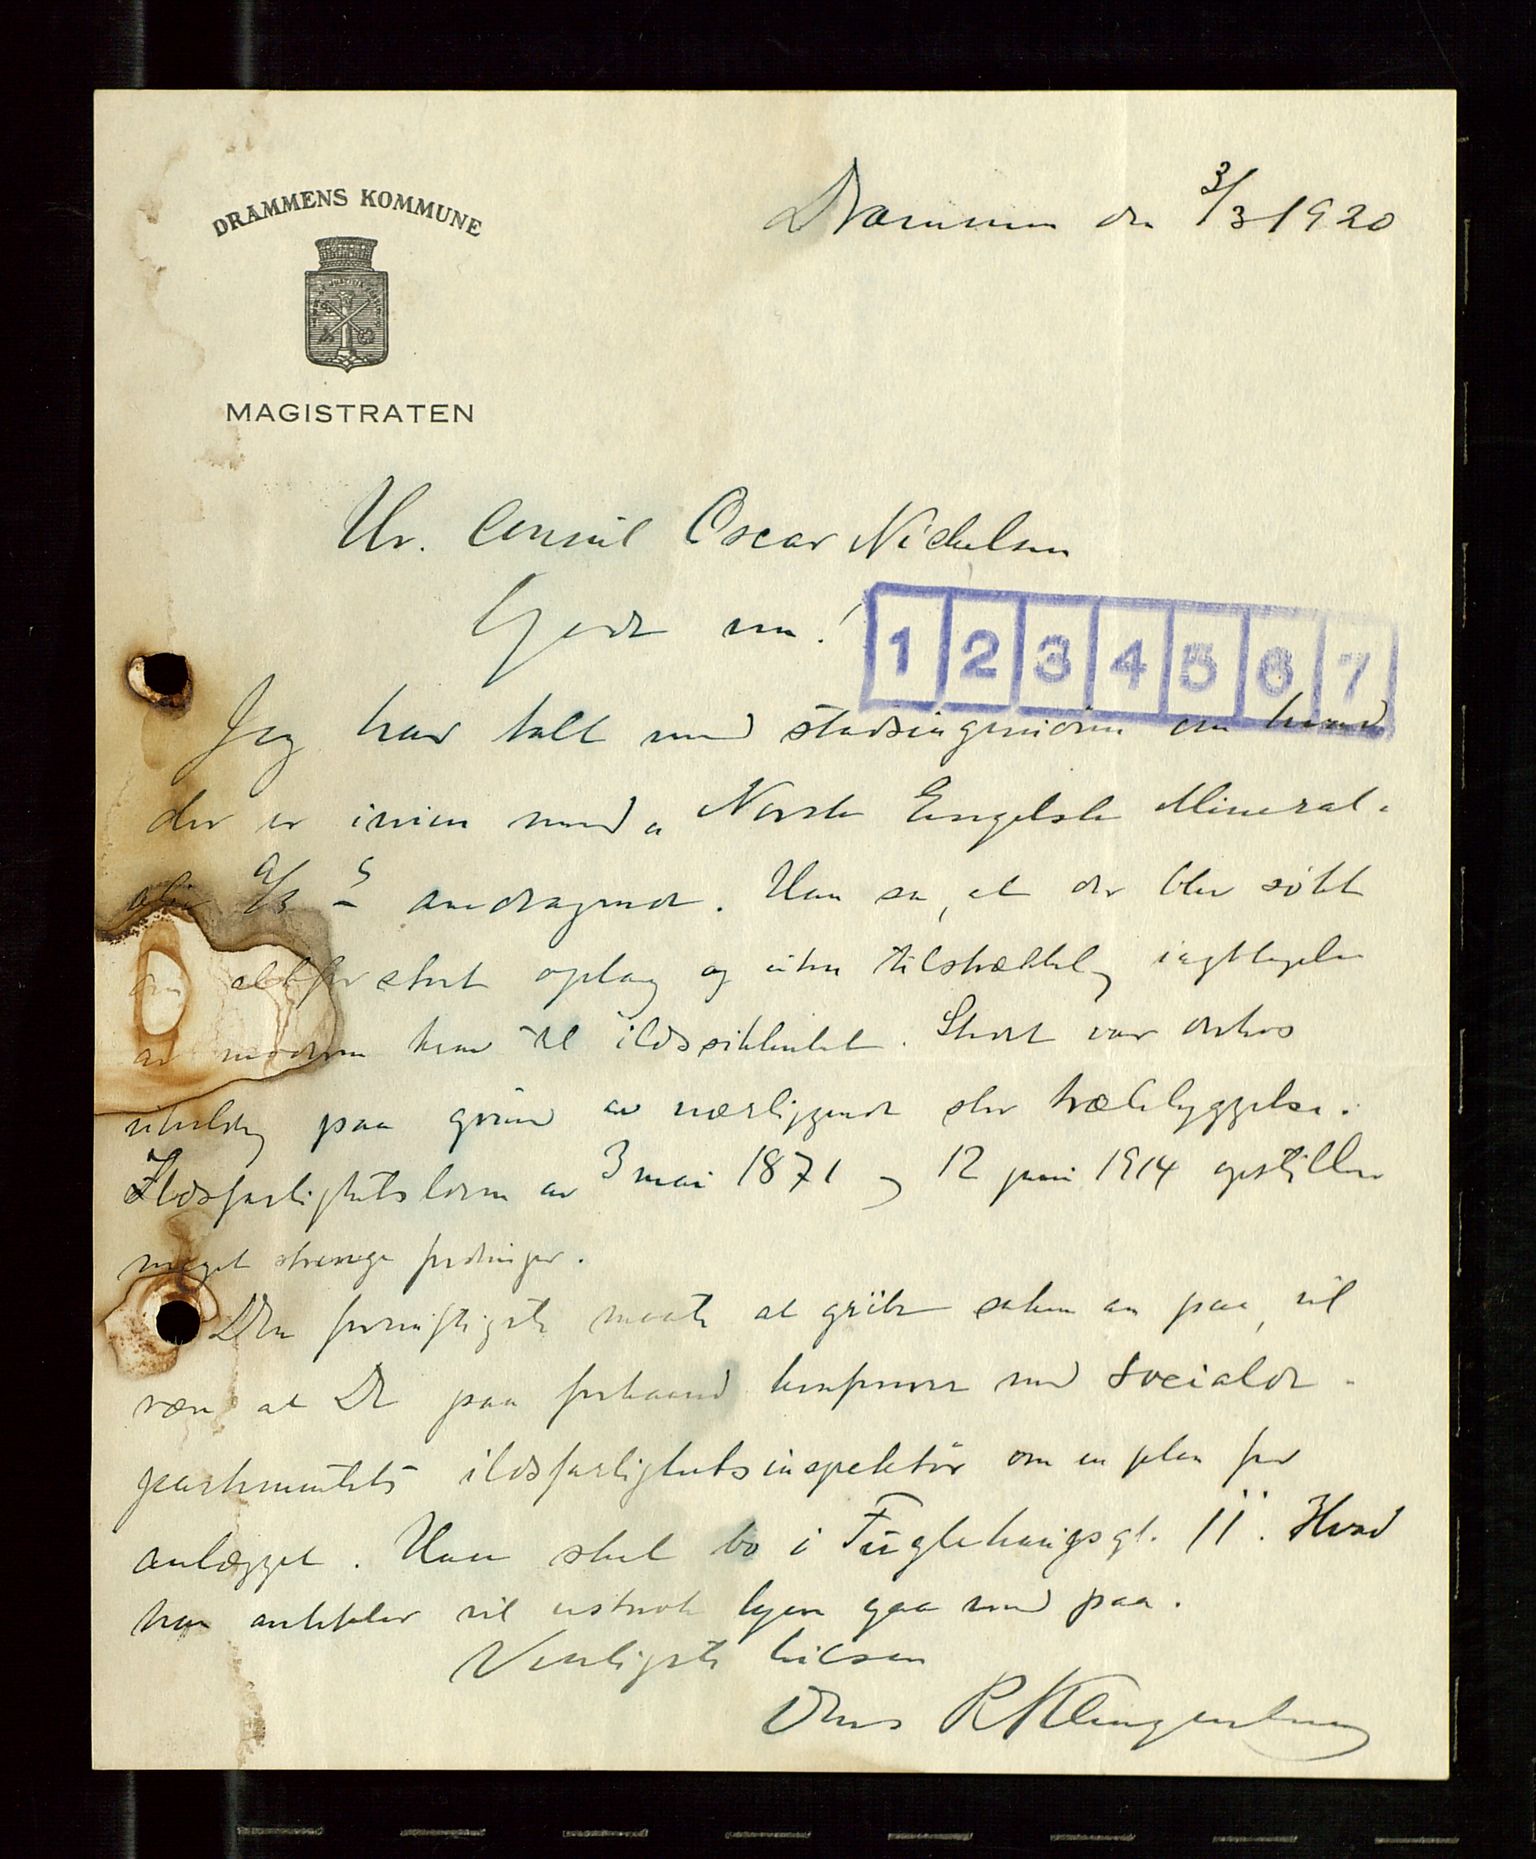 DRAMMENS KOMMUNE
MAGISTRATEN
Drammen den 3/3 1920
Hr. Consul Oscar Nickelsen
Gode ven!
1 2 3 4 5 6 7
Jeg har talt med stadsingeniøren om hvad
der er iveien med „Norsk Engelsk Mineral-
olie A/S"s andragende. Han sa, at der blev søkt
om altfor stort oplag og uten tilstrækkelig iagttagelse
av moderne krav til ildssikkerhet. Stedet var derhos
uheldig paa grund av nærliggende stor træbebyggelse.
Ildsfarlighetsloven av 3 mai 1871 og 12 juni 1914 opstiller
meget strenge fordringer.
Den fornuftigste maate at gripe saken an paa, vil
være at De paa forhaand konfererer med Socialde-
partementets ildsfarlighetsinspektør om en plan for
anlægget. Han skal bo i Fuglehaugsgt. 11. Hvad
han anbefaler vil utvivlsomt byen gaa med paa.
Venligste hilsen
Deres R Klingenberg